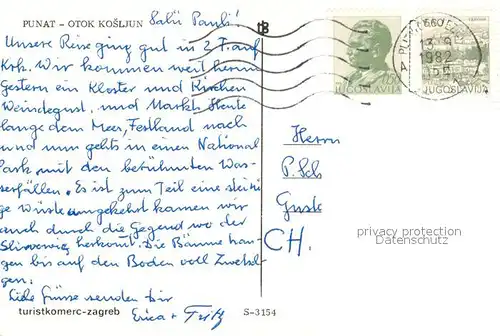 PUNAT – OTOK KOŠLJUN
Salü Pauli!
Unsere Reise ging gut in 2 T. auf
Krk. Wir kommen weit herum
Gestern ein Kloster und Kirchen
Weindegust. und Markt. Heute
lange dem Meer, Festland nach
und nun gehts in einen National
Park mit den berühmten Was-
serfällen. Es ist zum Teil eine steini
ge Wüste umgekehrt kamen wir
auch durch die Gegend wo der
herkomt. Die Bäume han-
gen bis auf den Boden voll Zwetsch
gen.
Liebe Grüsse senden Dir
Erica + Fritz
turistkomerc-zagreb
S-3154
JUGOSLAVIJA
JUGOSLAVIJA
13.9
1982
Herrn
P. Sch
CH.
privacy protection
Datenschutz